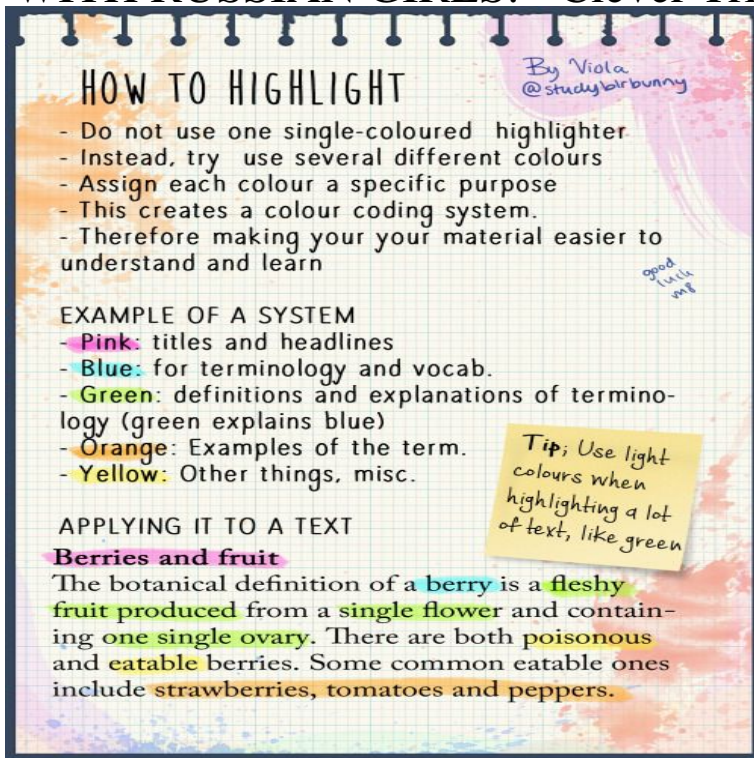 WITH RUSSIAN GIRLS!
HOW TO HIGHLIGHT
By Viola
@studyblrbunny
- Do not use one single-coloured highlighter
- Instead, try use several different colours
- Assign each colour a specific purpose
- This creates a colour coding system.
- Therefore making your your material easier to
understand and learn
good
luck
EXAMPLE OF A SYSTEM
- Pink: titles and headlines
- Blue: for terminology and vocab.
- Green: definitions and explanations of termino-
logy (green explains blue)
- Orange: Examples of the term.
- Yellow: Other things, misc.
Tip; Use light
colours when
highlighting a lot
of text, like green
APPLYING IT TO A TEXT
Berries and fruit
The botanical definition of a berry is a fleshy
fruit produced from a single flower and contain-
ing one single ovary. There are both poisonous
and eatable berries. Some common eatable ones
include strawberries, tomatoes and peppers.